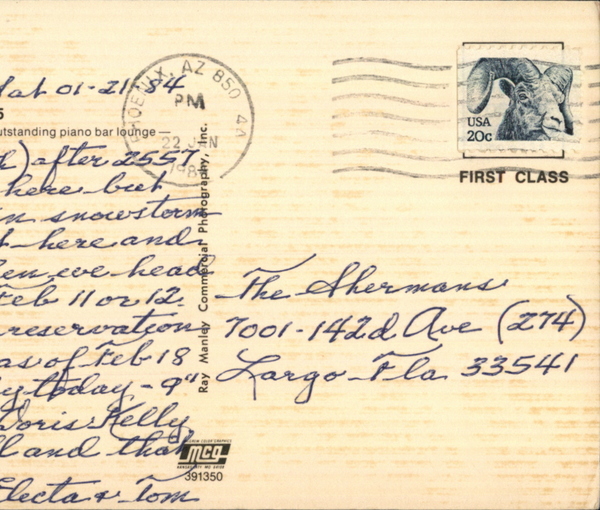 Sat 01-21-84
5
outstanding piano bar lounge —
) after 2557
here but
in snowstorm
here and
en we head
Feb 11 or 12.
reservation
as of Feb 18
y today - 9"
Doris Kelly
ll and that
Electa & Tom
PHOENIX, AZ 850 4A
PM
22 JAN
198
Ray Manley Commercial Photography, Inc.
USA
20c
FIRST CLASS
The Shermans
7001-142d Ave (274)
Largo Fla 33541
mcg
391350